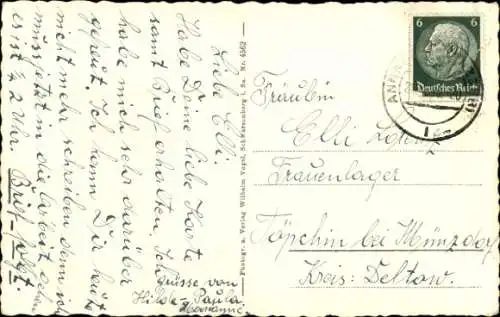 Liebe Elli.
Habe Deine liebe Karte
samt Brief erhalten. Ich
habe mich sehr darüber
gefreut. Ich kann Dir heute
nicht mehr schreiben denn ich
muss jetzt in die Arbeit
es ist ½ 2 Uhr. Brief folgt.
Grüsse von
Hilde, Paula
Photogr. u. Verlag Wilhelm Vogel, Schwarzenberg i. Sa. Nr. 4562
6 6
Deutsches Reich
Fräulein
Elli
Frauenlager
Töpchin bei Münzdorf
Kreis: Deltow.